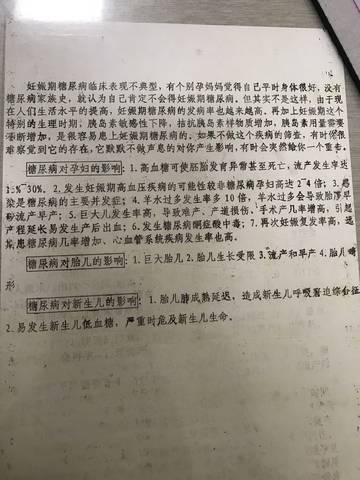 妊娠期糖尿病临床表现不典型，有个别孕妈妈觉得自己平时身体很好，没有
糖尿病家族史，就认为自己肯定不会得妊娠期糖尿病。但其实不是这样，由于现
在人们生活水平的提高，妊娠期糖尿病的发病率也越来越高。再加上妊娠期这个
特别的生理时期：胰岛素敏感性下降，拮抗胰岛素样物质增加，胰岛素用量需要
不断增加，是很容易患上妊娠期糖尿病的。如果不做这个疾病的筛查，有时你很
难察觉到它的存在，它默默不做声息的对你产生影响，有时会突然给你一个重击。
糖尿病对孕妇的影响：1.高血糖可使胚胎发育异常甚至死亡，流产发生率达
15%~30%。2.发生妊娠期高血压疾病的可能性较非糖尿病孕妇高达2~4倍；3.感
染是糖尿病的主要并发症；4.羊水过多发生率多10倍，羊水过多会导致胎膜早
破流产早产；5.巨大儿发生率高，导致难产、产道损伤、手术产几率增高，引起
产程延长易发生产后出血；6.发生糖尿病酮症酸中毒；7.再次妊娠复发率高，远
期患糖尿病几率增加、心血管系统疾病发生率也高。
糖尿病对胎儿的影响：1.巨大胎儿 2.胎儿生长受限 3.流产和早产 4.胎儿畸
形
糖尿病对新生儿的影响：1.胎儿肺成熟延迟，造成新生儿呼吸窘迫综合征
2.易发生新生儿低血糖，严重时危及新生儿生命。